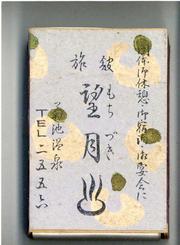 団体御休憩・御宿泊・御宴会に
旅館
もちづき
望月
菊池温泉
TEL二五五六